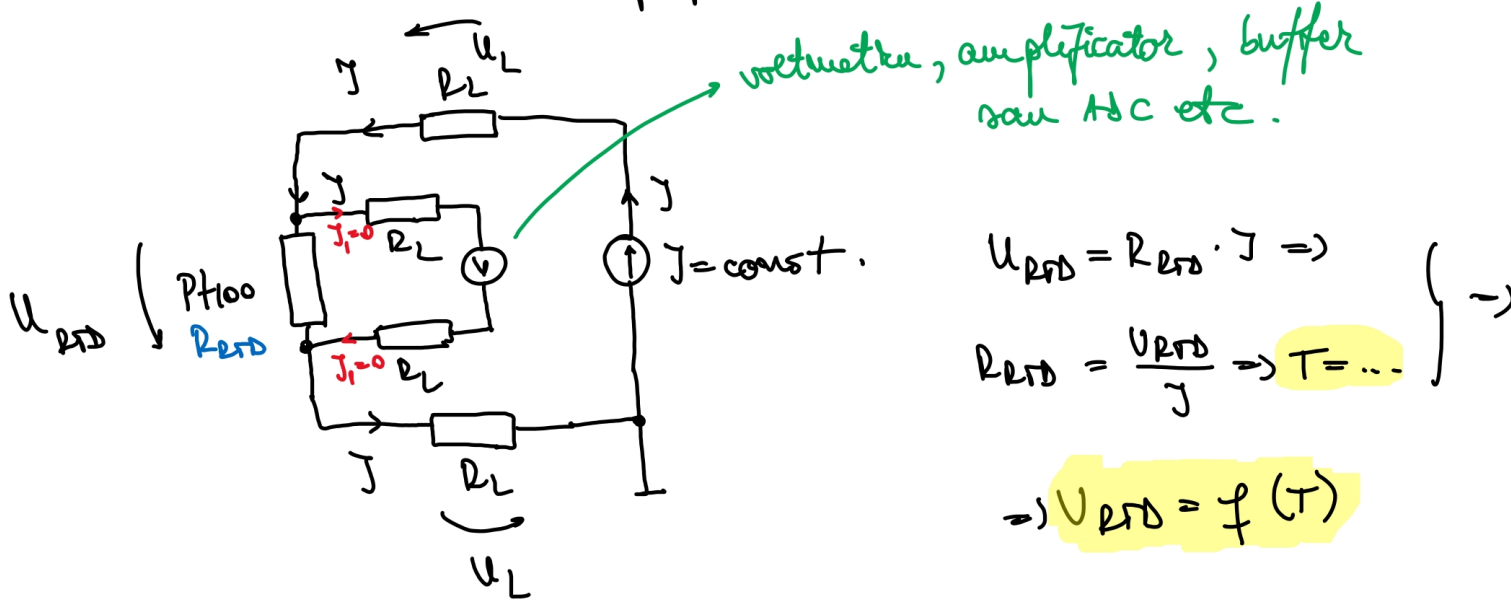 U_L
J
R_L
voltmetru, amplificator, buffer
sau ADC etc.
J
J₁=0
R_L
V
J
J=const.
U_RTD
Pt100
R_RTD
J₁=0
R_L
J
R_L
U_L
U_RTD = R_RTD · J =>
R_RTD = U_RTD / J => T=...
=>
=> U_RTD = f (T)